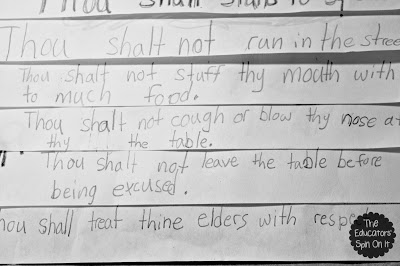 Thou shalt
Thou shalt not run in the stree
Thou shalt not stuff thy mouth with
to much food.
Thou shalt not cough or blow thy nose at
thy the table.
Thou shalt not leave the table before
being excused.
hou shall treat thine elders with
The
Educators'
Spin On It